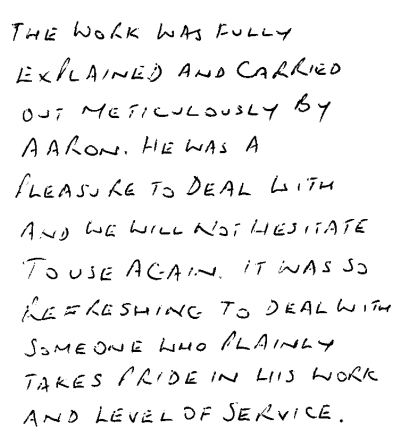 THE WORK WAS FULLY
EXPLAINED AND CARRIED
OUT METICULOUSLY BY
AARON. HE WAS A
PLEASURE TO DEAL WITH
AND WE WILL NOT HESITATE
TO USE AGAIN. IT WAS SO
REFRESHING TO DEAL WITH
SOMEONE WHO PLAINLY
TAKES PRIDE IN HIS WORK
AND LEVEL OF SERVICE.